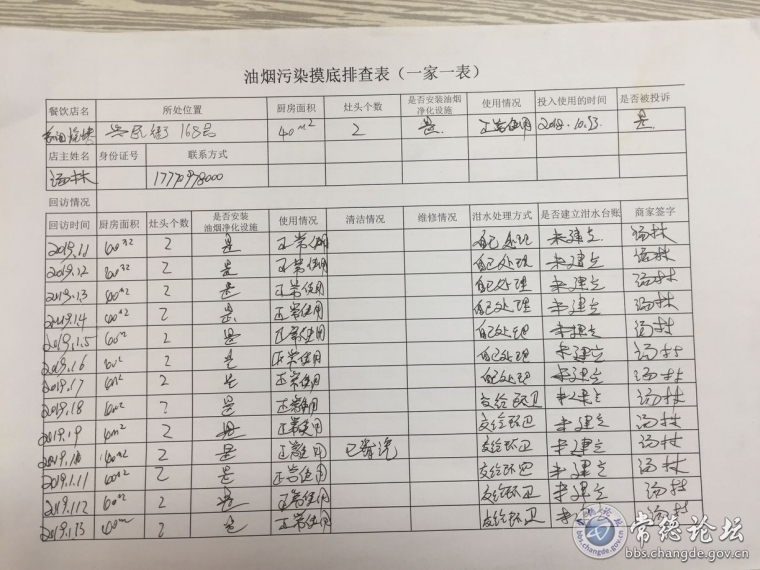 油烟污染摸底排查表（一家一表）
餐饮店名 所处位置 厨房面积 灶头个数 是否安装油烟净化设施 使用情况 投入使用的时间 是否被投诉
兴民街 168号 40m² 2 是 正常使用 是
店主姓名 身份证号 联系方式
汤林
回访情况
回访时间 厨房面积 灶头个数 是否安装油烟净化设施 使用情况 清洁情况 维修情况 泔水处理方式 是否建立泔水台账 商家签字
2019.1.1 40m² 2 是 正常使用 自己处理 未建立 汤林
2019.1.2 40m² 2 是 正常使用 自己处理 未建立 汤林
2019.1.3 40m² 2 是 正常使用 自己处理 未建立 汤林
2019.1.4 40m² 2 是 正常使用 自己处理 未建立 汤林
2019.1.5 40m² 2 是 正常使用 自己处理 未建立 汤林
2019.1.6 40m² 2 是 正常使用 自己处理 未建立 汤林
2019.1.7 40m² 2 是 正常使用 自己处理 未建立 汤林
2019.1.8 40m² 2 是 正常使用 交给环卫 未建立 汤林
2019.1.9 40m² 2 是 正常使用 交给环卫 未建立 汤林
2019.1.10 40m² 2 是 正常使用 已清洗 交给环卫 未建立 汤林
2019.1.11 40m² 2 是 正常使用 交给环卫 未建立 汤林
2019.1.12 40m² 2 是 正常使用 交给环卫 未建立 汤林
2019.1.13 40m² 2 是 正常使用 交给环卫 未建立 汤林
常德论坛
bbs.changde.gov.cn